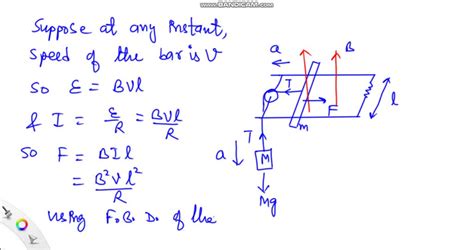 www.BANDICAM.com
Suppose at any instant,
speed of the bar is V
so ε = BVl
& I = ε/R = BVl/R
so F = BIl
= B²Vl²/R
using F.B.D. of the
a
B
I
F
l
m
T
a
M
Mg